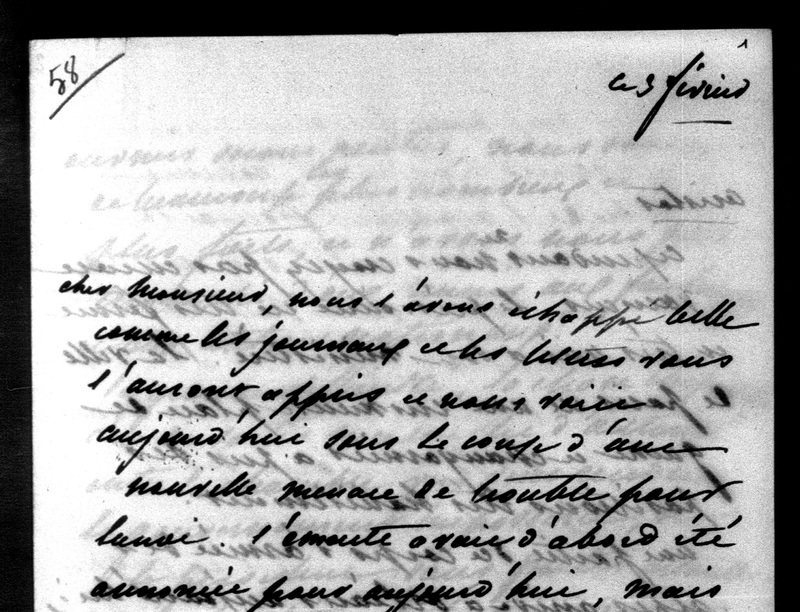 58
1
ce 3 février
cher Monsieur, nous l'avons échappé belle
comme les journaux et les lettres vous
l'auront appris et nous voici
aujourd'hui sous le coup d'une
nouvelle menace de trouble pour
lundi. l'émeute avait d'abord été
annoncée pour aujourd'hui, mais